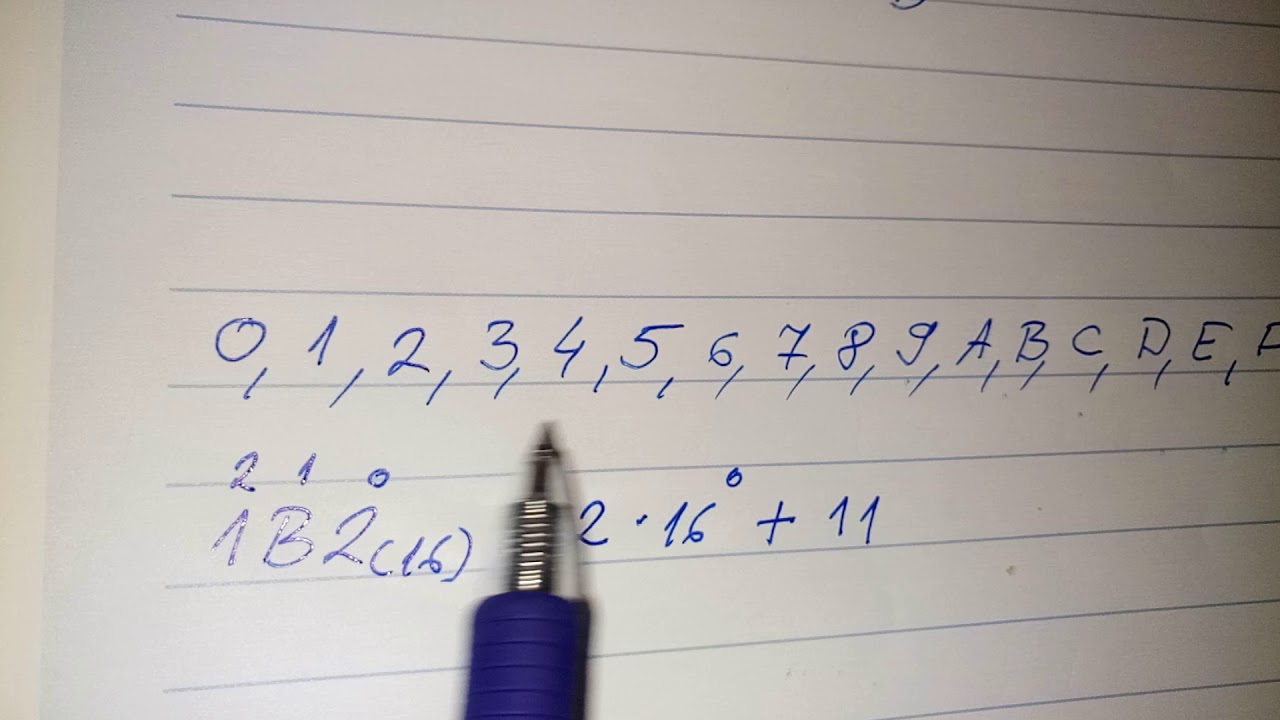 0, 1, 2, 3, 4, 5, 6, 7, 8, 9, A, B, C, D, E, F
2 1 0
1B2(16) 2 · 16⁰ + 11